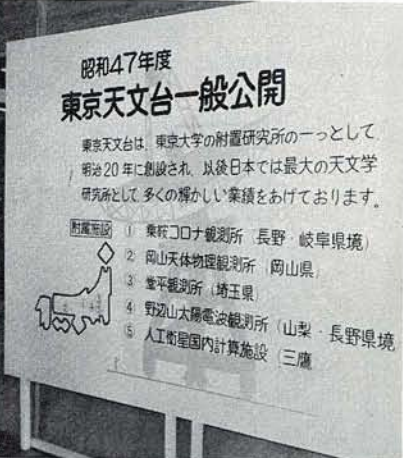 昭和47年度
東京天文台一般公開
東京天文台は、東京大学の附置研究所の一っとして
明治20年に創設され、以後日本では最大の天文学
研究所として、多くの輝かしい業績をあげております。
附属施設
① 乗鞍コロナ観測所(長野・岐阜県境)
② 岡山天体物理観測所(岡山県)
③ 堂平観測所(埼玉県)
④ 野辺山太陽電波観測所(山梨・長野県境
⑤ 人工衛星国内計算施設(三鷹